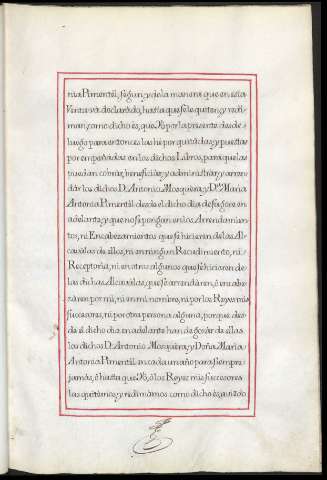 nia Pimentèl, segun, y de la manera que en esta
Venta va declarado, hasta que se le quiten, y redi-
man, como dicho es, que Yo por la presente desde
luego para entonces las hè por quitadas, y puestas
por empeñadas en los dichos Libros, para que las
puedan cobrar, beneficiar, y administrar, y arren-
dàr los dichos D. Antonio Mosquera, y D.ª Maria
Antonia Pimentèl desde el dicho dia de fagore en
adelante, y que no se pongan en los Arrendamien-
tos, ni Encabezamientos que se hicieren de las Al-
cavalas de ellos, ni en ningun Recudimiento, ni
Receptoria, ni en otros algunos que se hicieren de
las dichas Alcavalas, que se arrendàren, ò encabe-
zàren por mi, ni en mi nombre, ni por los Reyes mis
sucesores, ni por otra persona alguna, porque des-
de el dicho dia en adelante han de gozàr de ellas
los dichos D. Antonio Mosquera, y Doña Maria
Antonia Pimentèl en cada un año para siempre
jamàs, ò hasta que Yo, ò los Reyes mis sucesores
las quitèmos, y redimàmos como dicho es, quedo